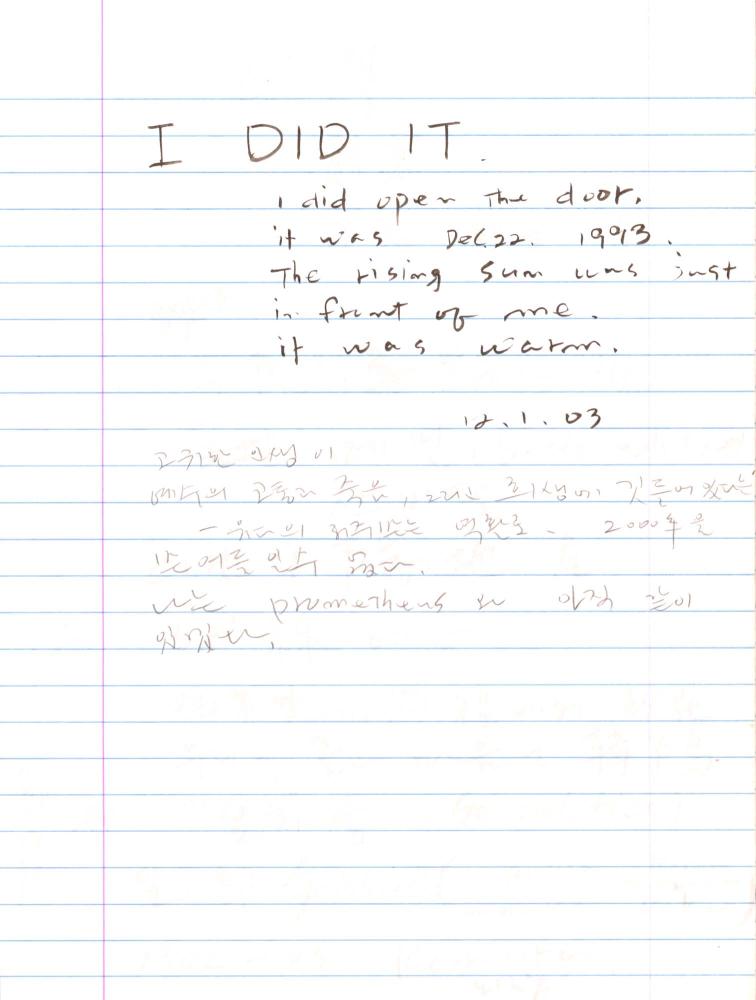 I DID IT.
I did open the door.
it was Dec. 22. 1993.
The rising sun was just
in front of me.
it was warm.
12.1.03
고귀한 인생이
예수의 고통과 죽음, 그리고 희생에 깃들어 있다는
유다의 저주받는 역할로. 2000年을
알 수 없다.
나는 prometheus 와 아직 같이
있었다.